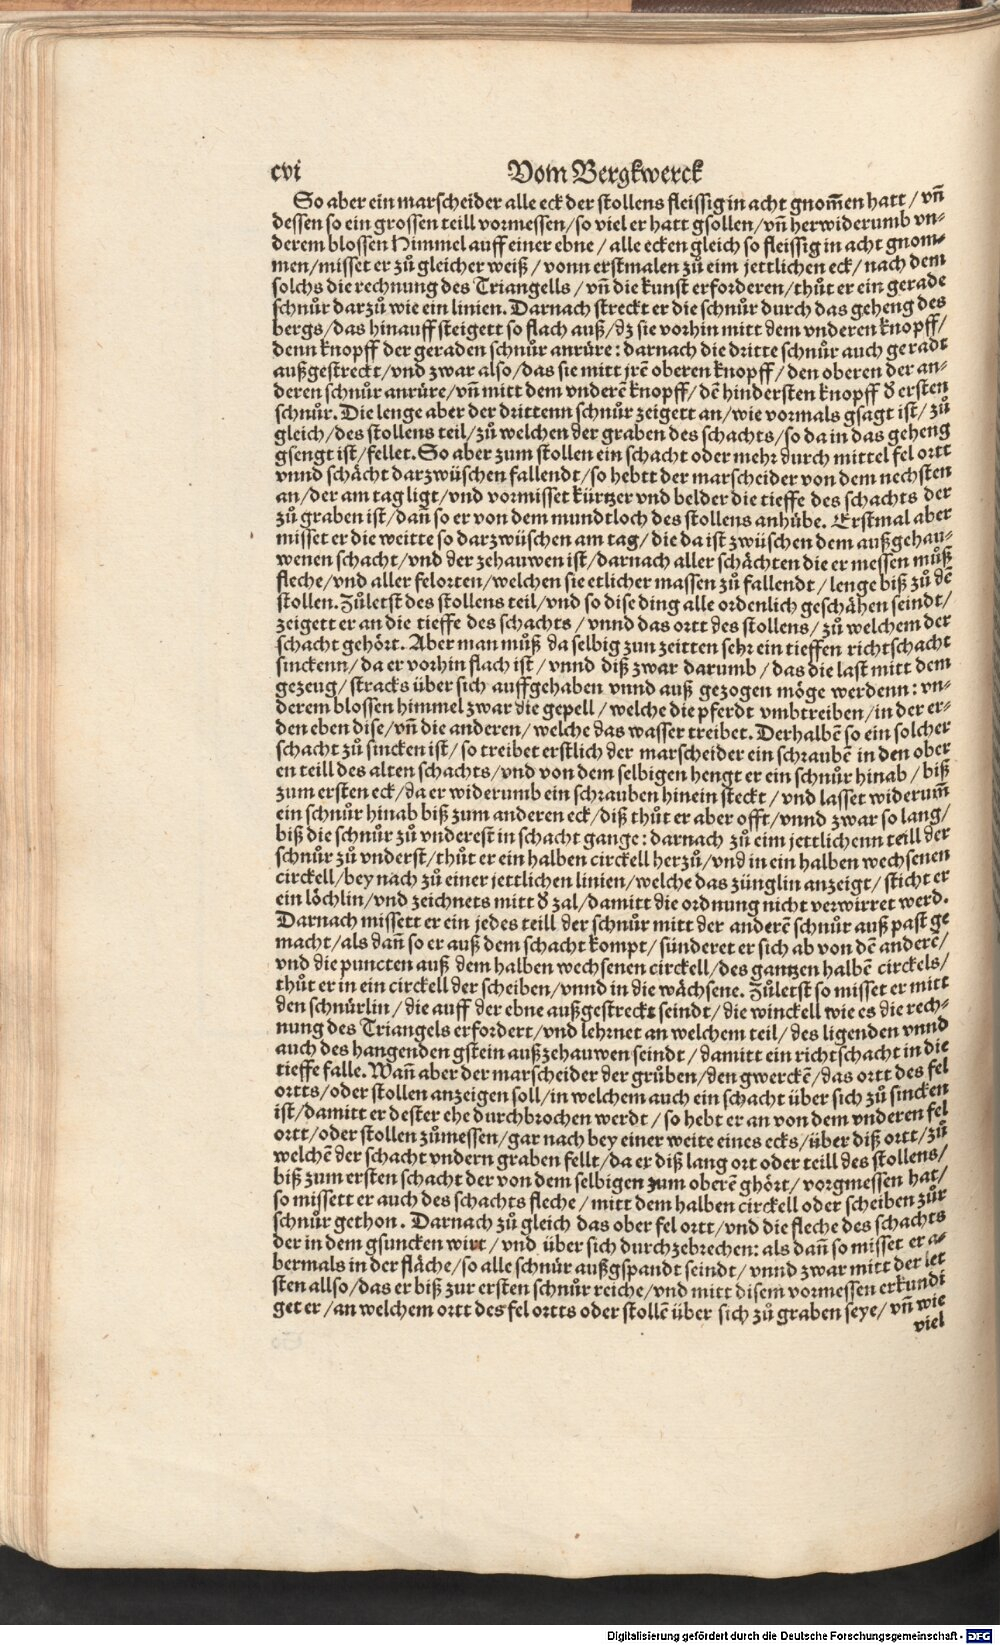 cvi Vom Bergkwerck
So aber ein marscheider alle eck der stollens fleissig in acht gnom̃en hatt / vñ
dessen so ein grossen teill vormessen / so viel er hatt gsollen / vñ herwiderumb vn-
derem blossen Himmel auff einer ebne / alle ecken gleich so fleissig in acht gnom-
men / misset er zů gleicher weiß / vonn erstmalen zů eim jettlichen eck / nach dem
solchs die rechnung des Triangells / vñ die kunst erforderen / thůt er ein gerade
schnůr darzů wie ein linien. Darnach streckt er die schnůr durch das geheng des
bergs / das hinauff steigett so flach auß / dz sie vorhin mitt dem vnderen knopff /
denn knopff der geraden schnůr anrüre: darnach die dritte schnůr auch geradt
außgestreckt / vnd zwar also / das sie mitt jrẽ oberen knopff / den oberen der an-
deren schnůr anrüre / vñ mitt dem vnderẽ knopff / dẽ hindersten knopff d̕ ersten
schnůr. Die lenge aber der drittenn schnůr zeigett an / wie vormals gsagt ist / zů
gleich / des stollens teil / zů welchen der graben des schachts / so da in das geheng
gsengt ist / fellet. So aber zum stollen ein schacht oder mehr durch mittel fel ortt
vnnd schächt darzwüschen fallendt / so hebtt der marscheider von dem nechsten
an / der am tag ligt / vnd vormisset kürtzer vnd belder die tieffe des schachts der
zů graben ist / dañ so er von dem mundtloch des stollens anhübe. Erstmal aber
misset er die weitte so darzwüschen am tag / die da ist zwüschen dem außgehau-
wenen schacht / vnd der zehauwen ist / darnach aller schächten die er messen můß
fleche / vnd aller felorten / welchen sie etlicher massen zů fallendt / lenge biß zů dẽ
stollen. Zůletst des stollens teil / vnd so dise ding alle ordenlich geschähen seindt /
zeigett er an die tieffe des schachts / vnnd das ortt des stollens / zů welchem der
schacht gehört. Aber man můß da selbig zun zeitten sehr ein tieffen richtschacht
sinckenn / da er vorhin flach ist / vnnd diß zwar darumb / das die last mitt dem
gezeug / stracks über sich auffgehaben vnnd auß gezogen möge werdenn: vn-
derem blossen himmel zwar die gepell / welche die pferdt vmbtreiben / in der er-
den eben dise / vñ die anderen / welche das wasser treibet. Derhalbẽ so ein solcher
schacht zů sincken ist / so treibet erstlich der marscheider ein schraubẽ in den ober
en teill des alten schachts / vnd von dem selbigen hengt er ein schnůr hinab / biß
zum ersten eck / da er widerumb ein schrauben hinein steckt / vnd lasset widerum̃
ein schnůr hinab biß zum anderen eck / diß thůt er aber offt / vnnd zwar so lang /
biß die schnůr zů vnderest in schacht gange: darnach zů eim jettlichenn teill der
schnůr zů vnderst / thůt er ein halben circkell herzů / vnd in ein halben wechsenen
circkell / bey nach zů einer jettlichen linien / welche das zünglin anzeigt / sticht er
ein löchlin / vnd zeichnets mitt d̕ zal / damitt die ordnung nicht verwirret werd.
Darnach missett er ein jedes teill der schnůr mitt der anderẽ schnůr auß past ge
macht / als dañ so er auß dem schacht kompt / sünderet er sich ab von dẽ anderẽ /
vnd die puncten auß dem halben wechsenen circkell / des gantzen halbẽ circkels /
thůt er in ein circkell der scheiben / vnnd in die wächsene. Zůletst so misset er mitt
den schnürlin / die auff der ebne außgestreckt seindt / die winckell wie es die rech-
nung des Triangels erfordert / vnd lehrnet an welchem teil / des ligenden vnnd
auch des hangenden gstein außzehauwen seindt / damitt ein richtschacht in die
tieffe falle. Wañ aber der marscheider der grůben / den gwerckẽ / das ortt des fel
ortts / oder stollen anzeigen soll / in welchem auch ein schacht über sich zů sincken
ist / damitt er dester ehe durchbrochen werdt / so hebt er an von dem vnderen fel
ortt / oder stollen zůmessen / gar nach bey einer weite eines ecks / über diß ortt / zů
welchẽ der schacht vndern graben fellt / da er diß lang ort oder teill des stollens /
biß zum ersten schacht der von dem selbigen zum oberẽ ghört / vorgmessen hat /
so missett er auch des schachts fleche / mitt dem halben circkell oder scheiben zůr
schnůr gethon. Darnach zů gleich das ober fel ortt / vnd die fleche des schachts
der in dem gsuncken wirt / vnd über sich durchzebrechen: als dañ so misset er a-
bermals in der fläche / so alle schnůr außgspandt seindt / vnnd zwar mitt der let
sten allso / das er biß zur ersten schnůr reiche / vnd mitt disem vormessen erkundi
get er / an welchem ortt des fel ortts oder stollẽ über sich zů graben seye / vñ wie
viel
Digitalisierung gefördert durch die Deutsche Forschungsgemeinschaft - DFG